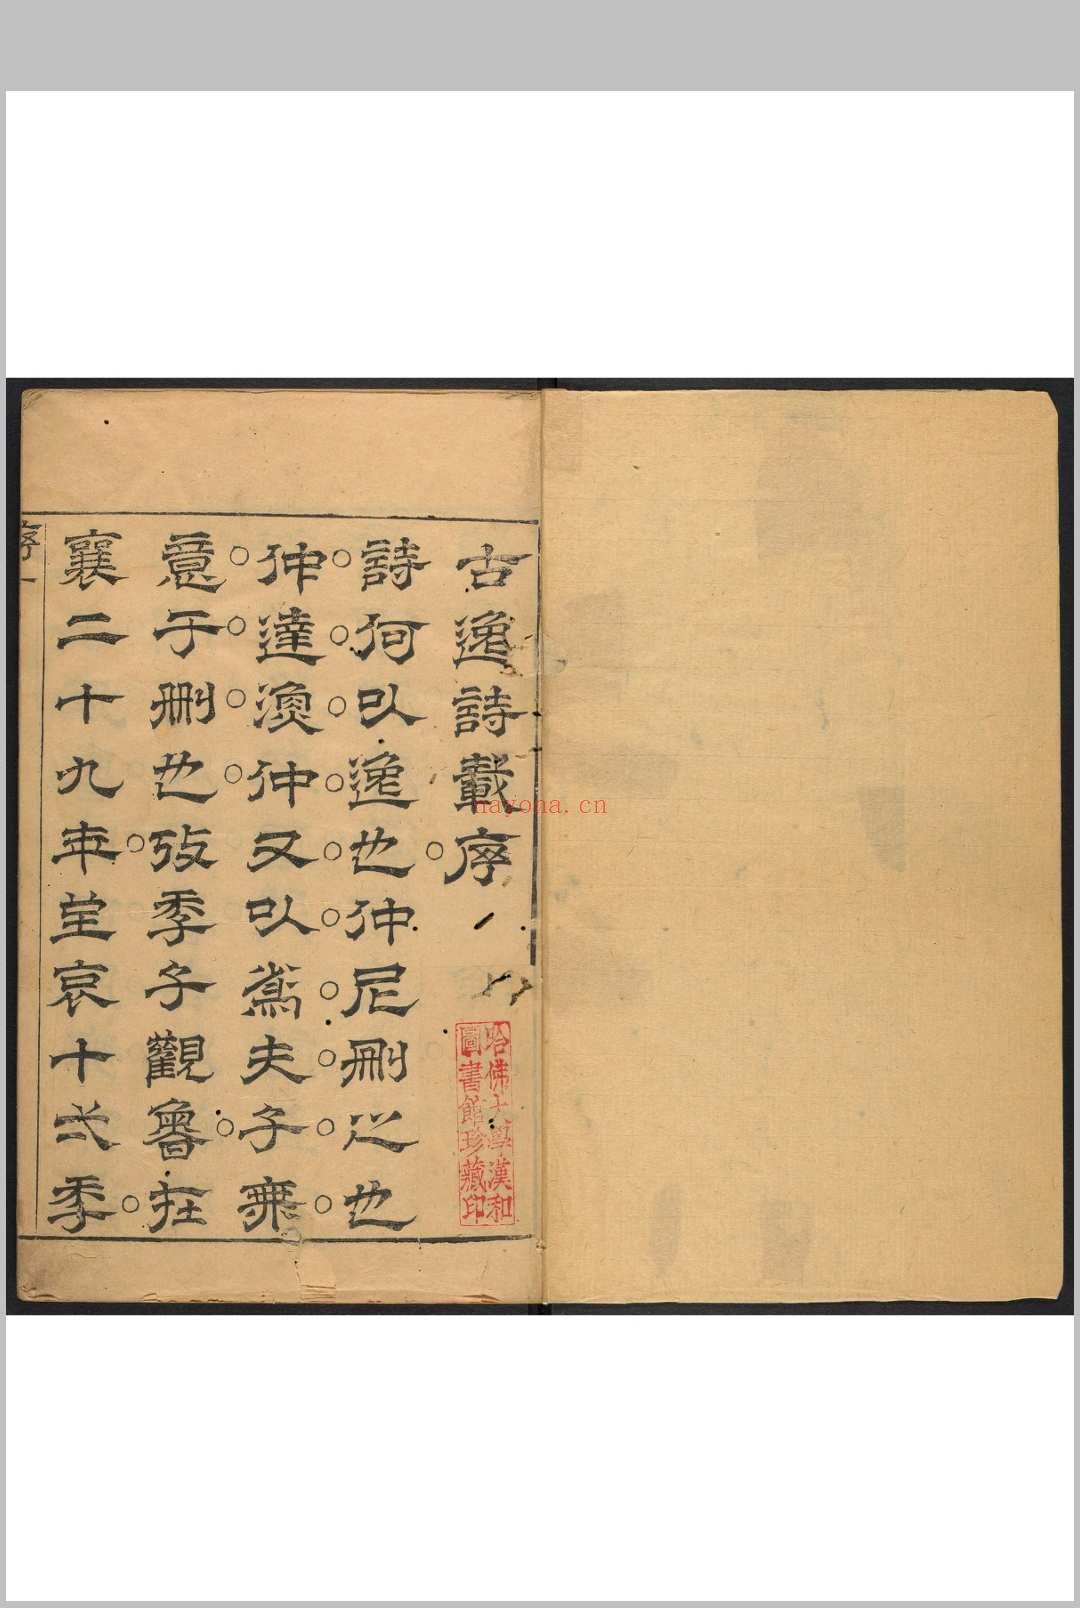 古逸詩載序
詩何以逸也仲尼刪之也
仲達漁仲又以爲夫子無
意于刪也攷季子觀魯在
襄二十九年至哀十弌秊
序一
哈佛大學漢和
圖書館珍藏印
nayona.cn